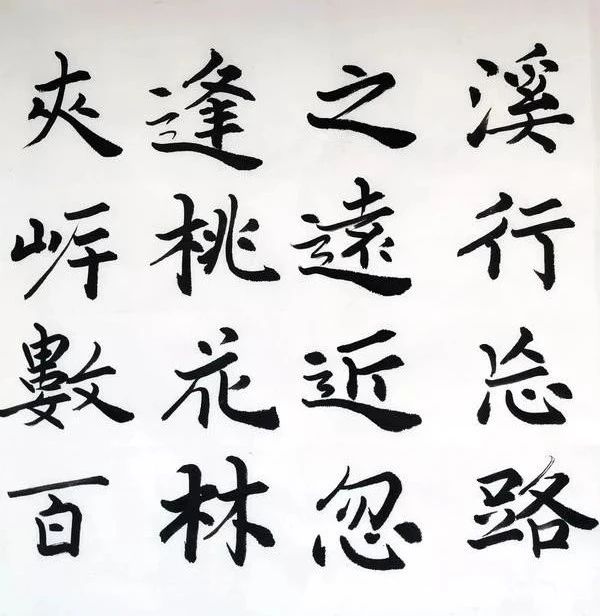 溪行忘路
之遠近忽
逢桃花林
夾岸數百